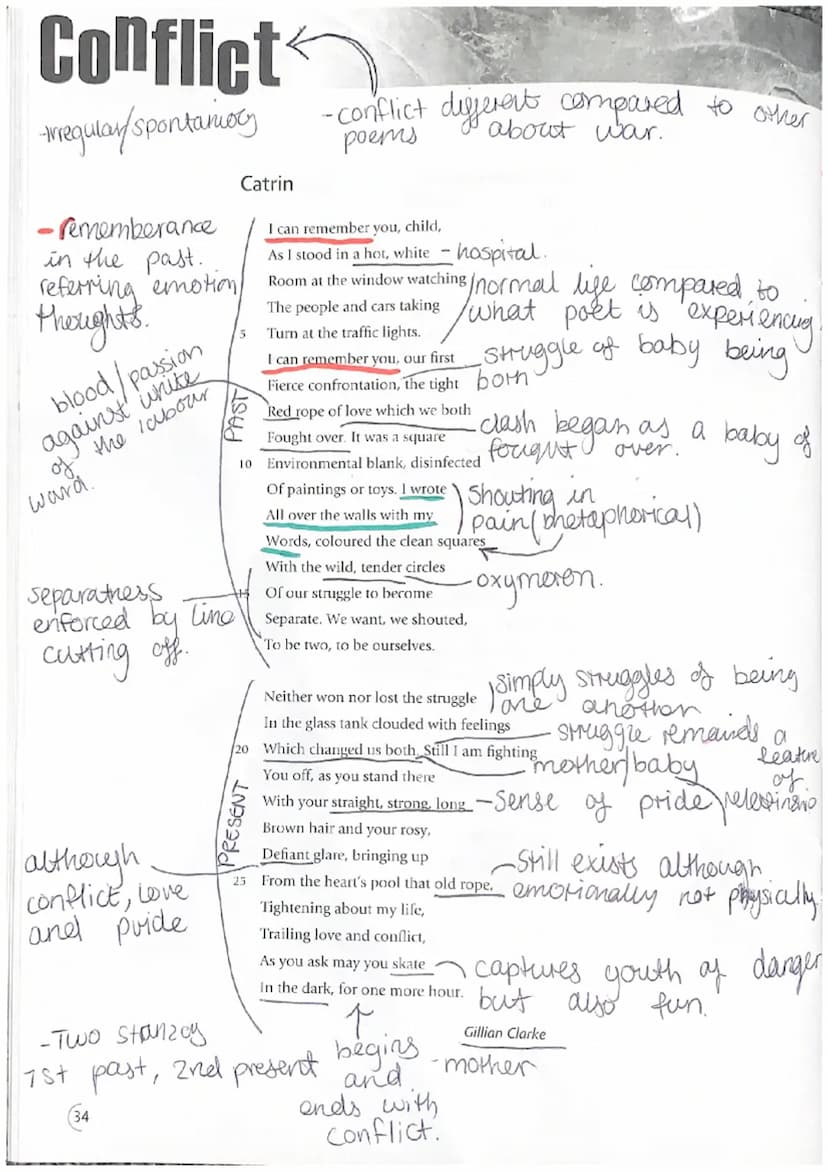 Conflict
-Irregular/spontaniory
-conflict different compared to other
poems about war.
Catrin
- rememberance
in the past.
referring emotion
thoughts.
I can remember you, child,
As I stood in a hot, white - hospital.
Room at the window watching
The people and cars taking
normal life compared to
what poet is experiencing
5 Turn at the traffic lights.
I can remember you, our first
struggle of baby being
born
Fierce confrontation, the tight
blood/passion
against white
of the labour
ward.
PAST
Red rope of love which we both
Fought over. It was a square
clash began as a baby of
fought over.
10 Environmental blank, disinfected
Of paintings or toys. I wrote
All over the walls with my
Shouting in
pain (metaphorical)
Words, coloured the clean squares
With the wild, tender circles
oxymoron.
15 Of our struggle to become
Separate. We want, we shouted,
To be two, to be ourselves.
separatness
enforced by line
cutting off.
Neither won nor lost the struggle
simply struggles of being
one another
In the glass tank clouded with feelings
struggle remains a
feature
of
relationship
20 Which changed us both. Still I am fighting
mother/baby
You off, as you stand there
With your straight, strong, long - Sense of pride
Brown hair and your rosy,
PRESENT
Defiant glare, bringing up
although
conflict, love
and pride
25 From the heart's pool that old rope,
Still exists although
emotionally not physically
Tightening about my life,
Trailing love and conflict,
As you ask may you skate
In the dark, for one more hour.
captures youth of danger
but also fun.
Gillian Clarke
-mother
-Two stanzas
1st past, 2nd present
begins
and
ends with
conflict.
34